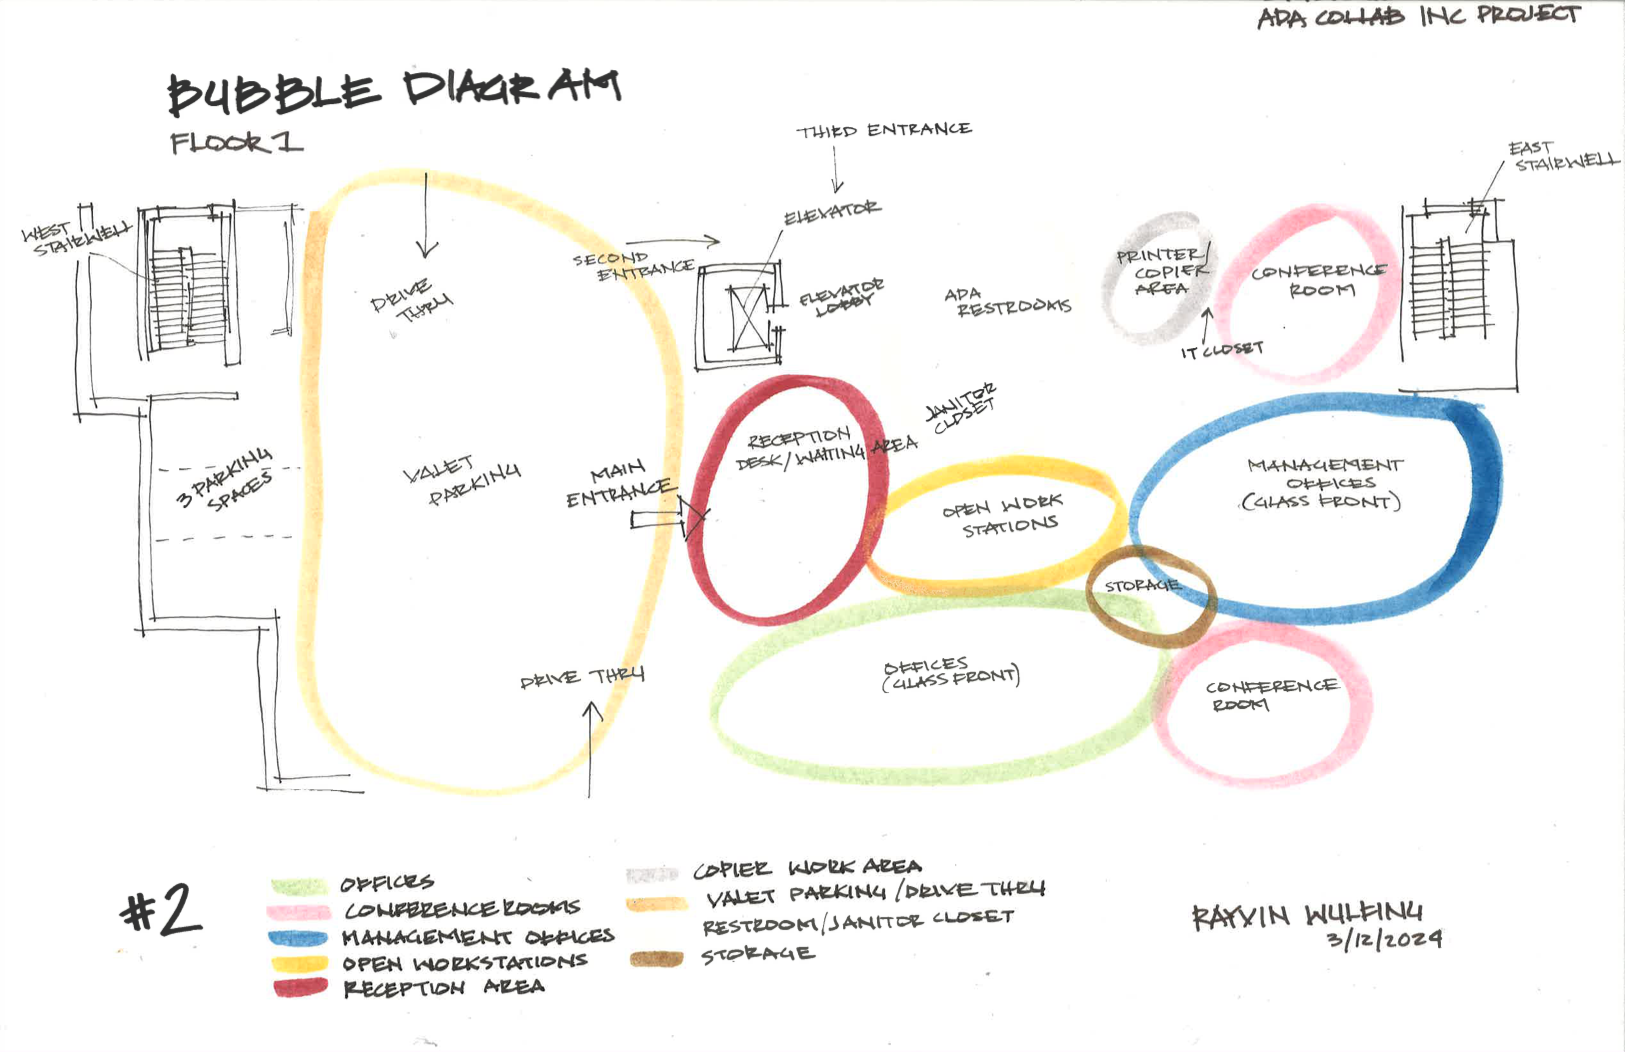 ADA COLLAB INC PROJECT
BUBBLE DIAGRAM
FLOOR 1
THIRD ENTRANCE
EAST
STAIRWELL
WEST
STAIRWELL
ELEVATOR
SECOND
ENTRANCE
DRIVE
THRU
ELEVATOR
LOBBY
ADA
RESTROOMS
PRINTER/
COPIER
AREA
CONFERENCE
ROOM
IT CLOSET
JANITOR
CLOSET
RECEPTION
DESK/WAITING AREA
3 PARKING
SPACES
VALET
PARKING
MAIN
ENTRANCE
OPEN WORK
STATIONS
MANAGEMENT
OFFICES
(GLASS FRONT)
STORAGE
DRIVE THRU
OFFICES
(GLASS FRONT)
CONFERENCE
ROOM
#2
OFFICES
CONFERENCE ROOMS
MANAGEMENT OFFICES
OPEN WORKSTATIONS
RECEPTION AREA
COPIER WORK AREA
VALET PARKING/DRIVE THRU
RESTROOM/JANITOR CLOSET
STORAGE
RAYVIN WULFING
3/12/2024